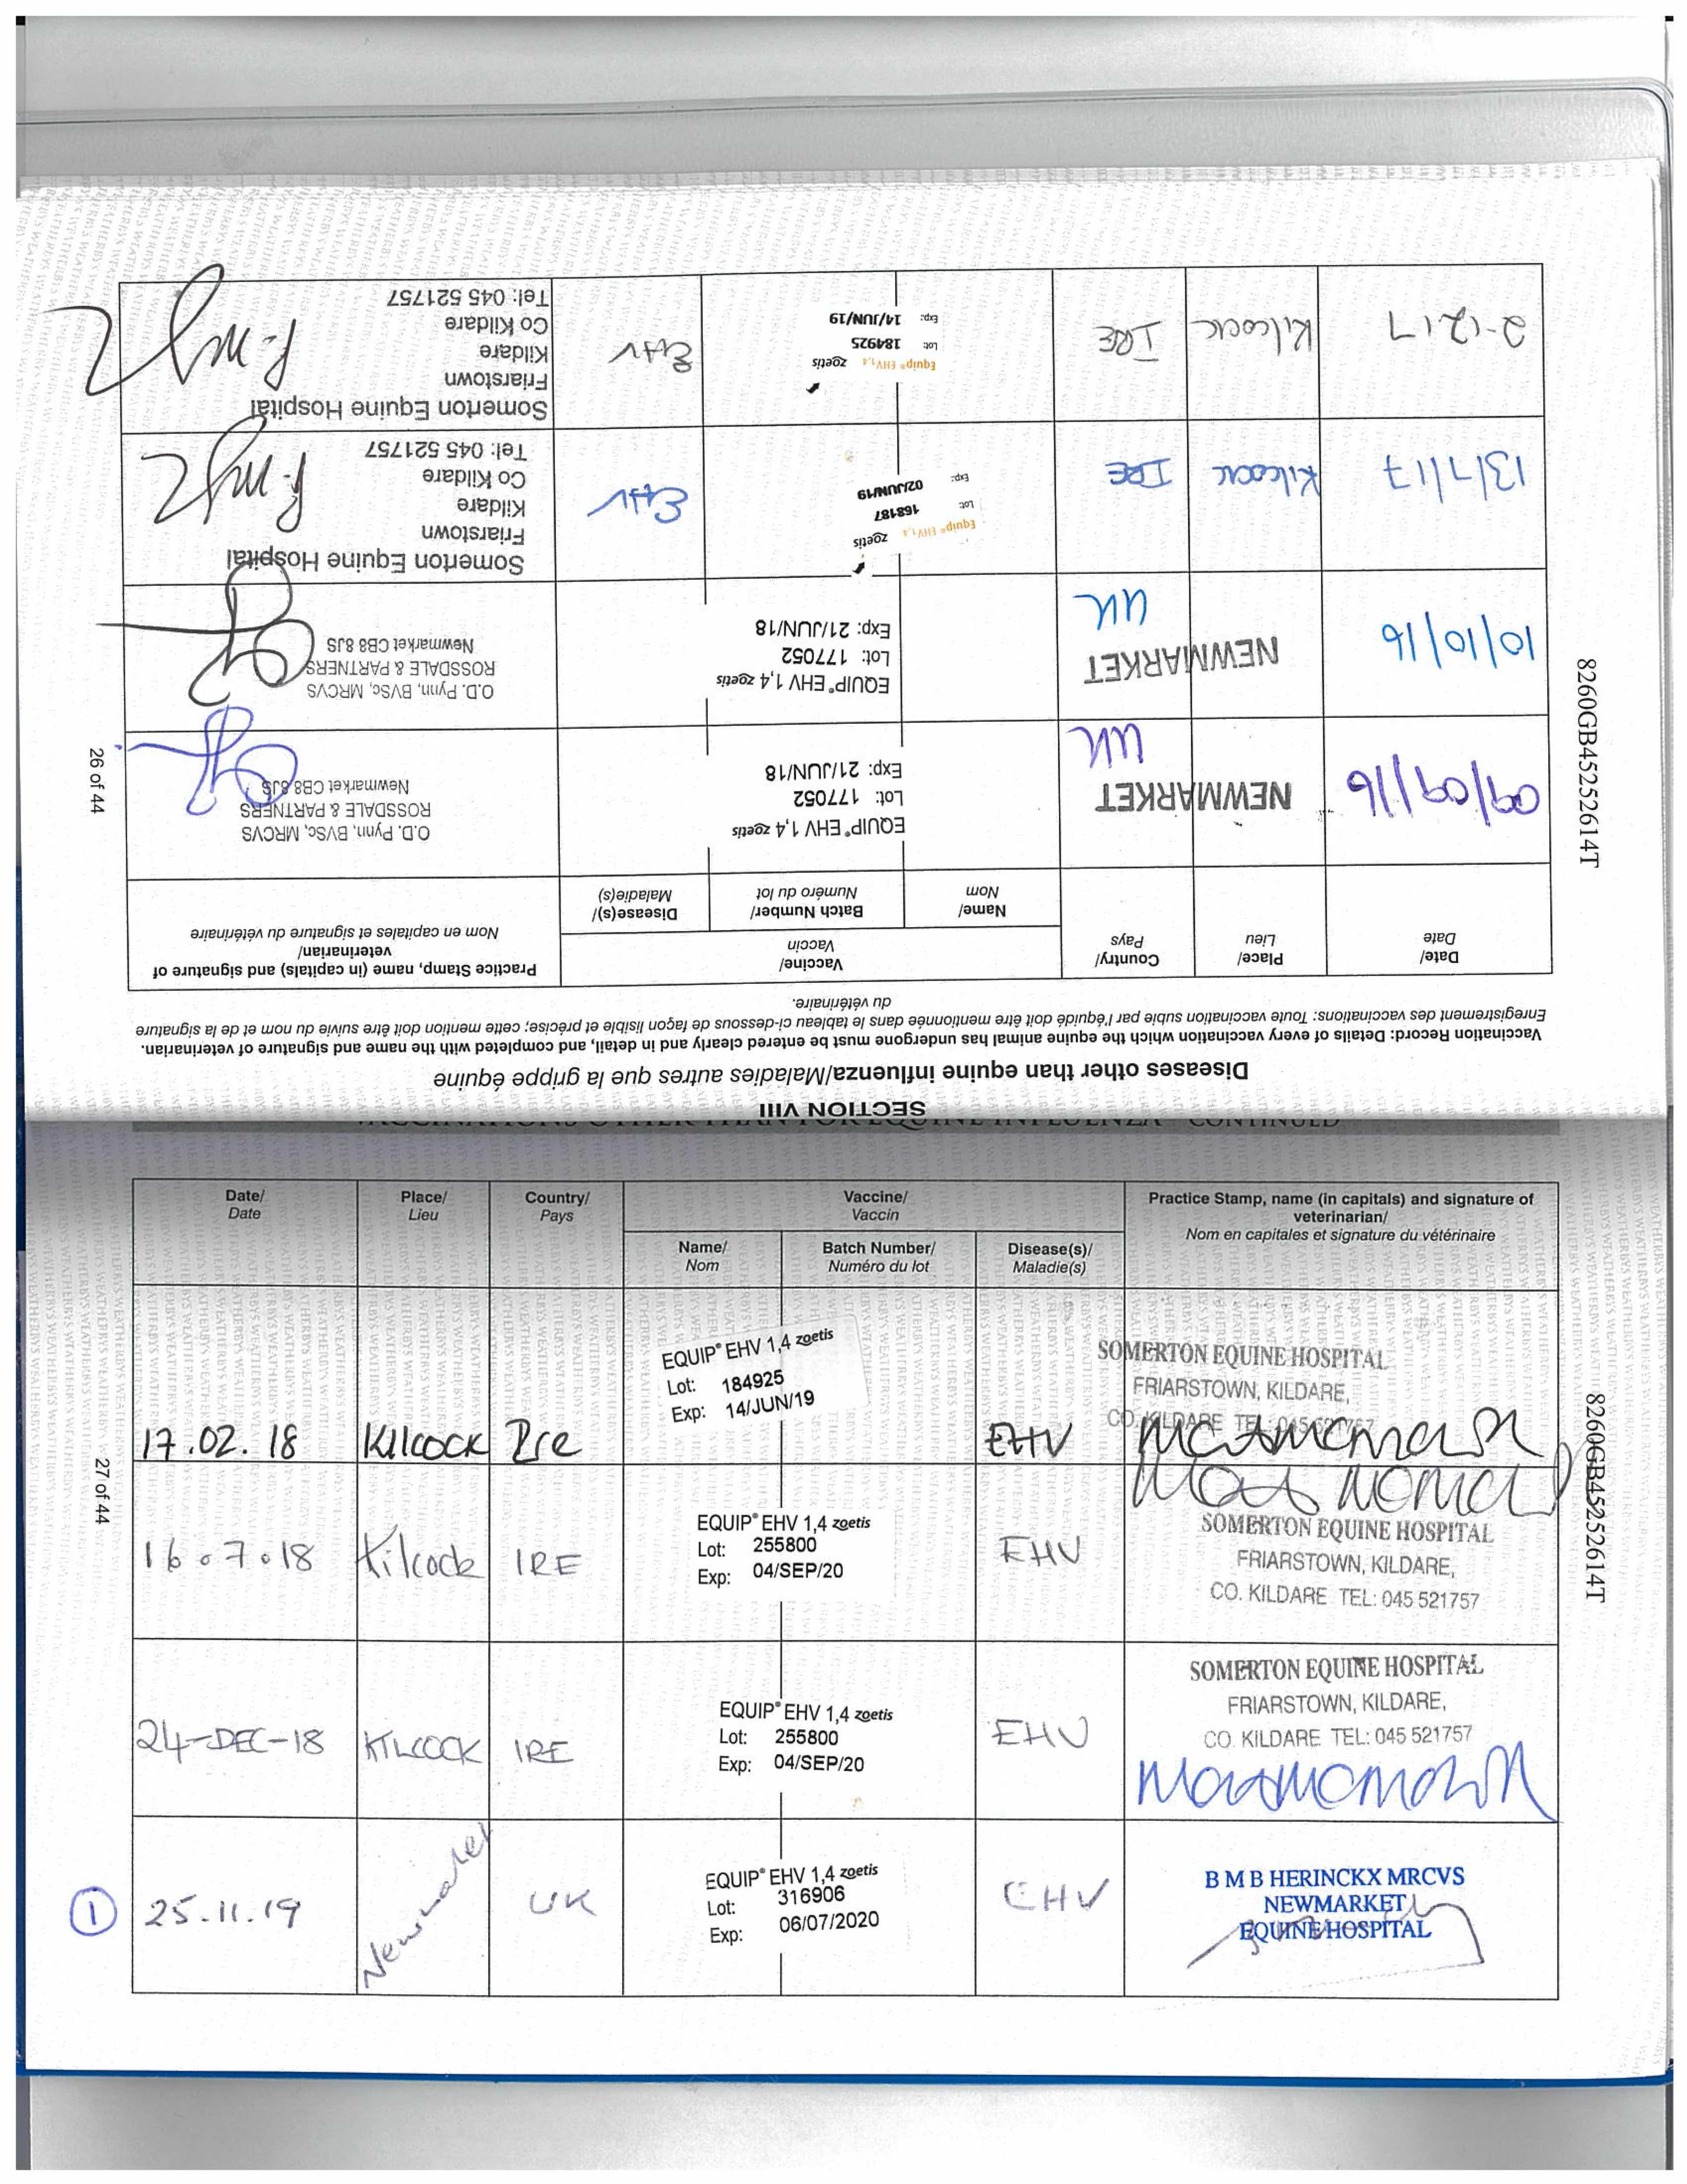 SECTION VIII
Diseases other than equine influenza/Maladies autres que la grippe équine
Vaccination Record: Details of every vaccination which the equine animal has undergone must be entered clearly and in detail, and completed with the name and signature of veterinarian.
Enregistrement des vaccinations: Toute vaccination subie par l'équidé doit être mentionnée dans le tableau ci-dessous de façon lisible et précise; cette mention doit être suivie du nom et de la signature
du vétérinaire.
Date/
Date
Place/
Lieu
Country/
Pays
Vaccine/
Vaccin
Name/
Nom
Batch Number/
Numéro du lot
Disease(s)/
Maladie(s)
Practice Stamp, name (in capitals) and signature of
veterinarian/
Nom en capitales et signature du vétérinaire
09/09/16
NEWMARKET
UK
EQUIP® EHV 1,4 zoetis
Lot: 177052
Exp: 21/JUN/18
O.D. Pynn, BVSc, MRCVS
ROSSDALE & PARTNERS
Newmarket CB8 8JS
10/10/16
NEWMARKET
UK
EQUIP® EHV 1,4 zoetis
Lot: 177052
Exp: 21/JUN/18
O.D. Pynn, BVSc, MRCVS
ROSSDALE & PARTNERS
Newmarket CB8 8JS
13/7/17
Kilcock
IRE
Equip® EHV 1,4 zoetis
Lot: 168187
Exp: 02/JUN/19
EHV
Somerton Equine Hospital
Friarstown
Kildare
Co Kildare
Tel: 045 521757
2-12-17
Kilcock
IRE
Equip® EHV 1,4 zoetis
Lot: 184925
Exp: 14/JUN/19
EHV
Somerton Equine Hospital
Friarstown
Kildare
Co Kildare
Tel: 045 521757
8260GB45252614T
26 of 44
VACCINATIONS OTHER THAN FOR EQUINE INFLUENZA - CONTINUED
Date/
Date
Place/
Lieu
Country/
Pays
Vaccine/
Vaccin
Name/
Nom
Batch Number/
Numéro du lot
Disease(s)/
Maladie(s)
Practice Stamp, name (in capitals) and signature of
veterinarian/
Nom en capitales et signature du vétérinaire
17.02.18
KILCOCK
Ire
EQUIP® EHV 1,4 zoetis
Lot: 184925
Exp: 14/JUN/19
EHV
SOMERTON EQUINE HOSPITAL
FRIARSTOWN, KILDARE,
CO. KILDARE TEL:
16.7.18
Kilcock
IRE
EQUIP® EHV 1,4 zoetis
Lot: 255800
Exp: 04/SEP/20
EHV
SOMERTON EQUINE HOSPITAL
FRIARSTOWN, KILDARE,
CO. KILDARE TEL: 045 521757
24-DEC-18
KILCOCK
IRE
EQUIP® EHV 1,4 zoetis
Lot: 255800
Exp: 04/SEP/20
EHV
SOMERTON EQUINE HOSPITAL
FRIARSTOWN, KILDARE,
CO. KILDARE TEL: 045 521757
1
25.11.19
Newmarket
UK
EQUIP® EHV 1,4 zoetis
Lot: 316906
Exp: 06/07/2020
EHV
B M B HERINCKX MRCVS
NEWMARKET
EQUINE HOSPITAL
8260GB45252614T
27 of 44